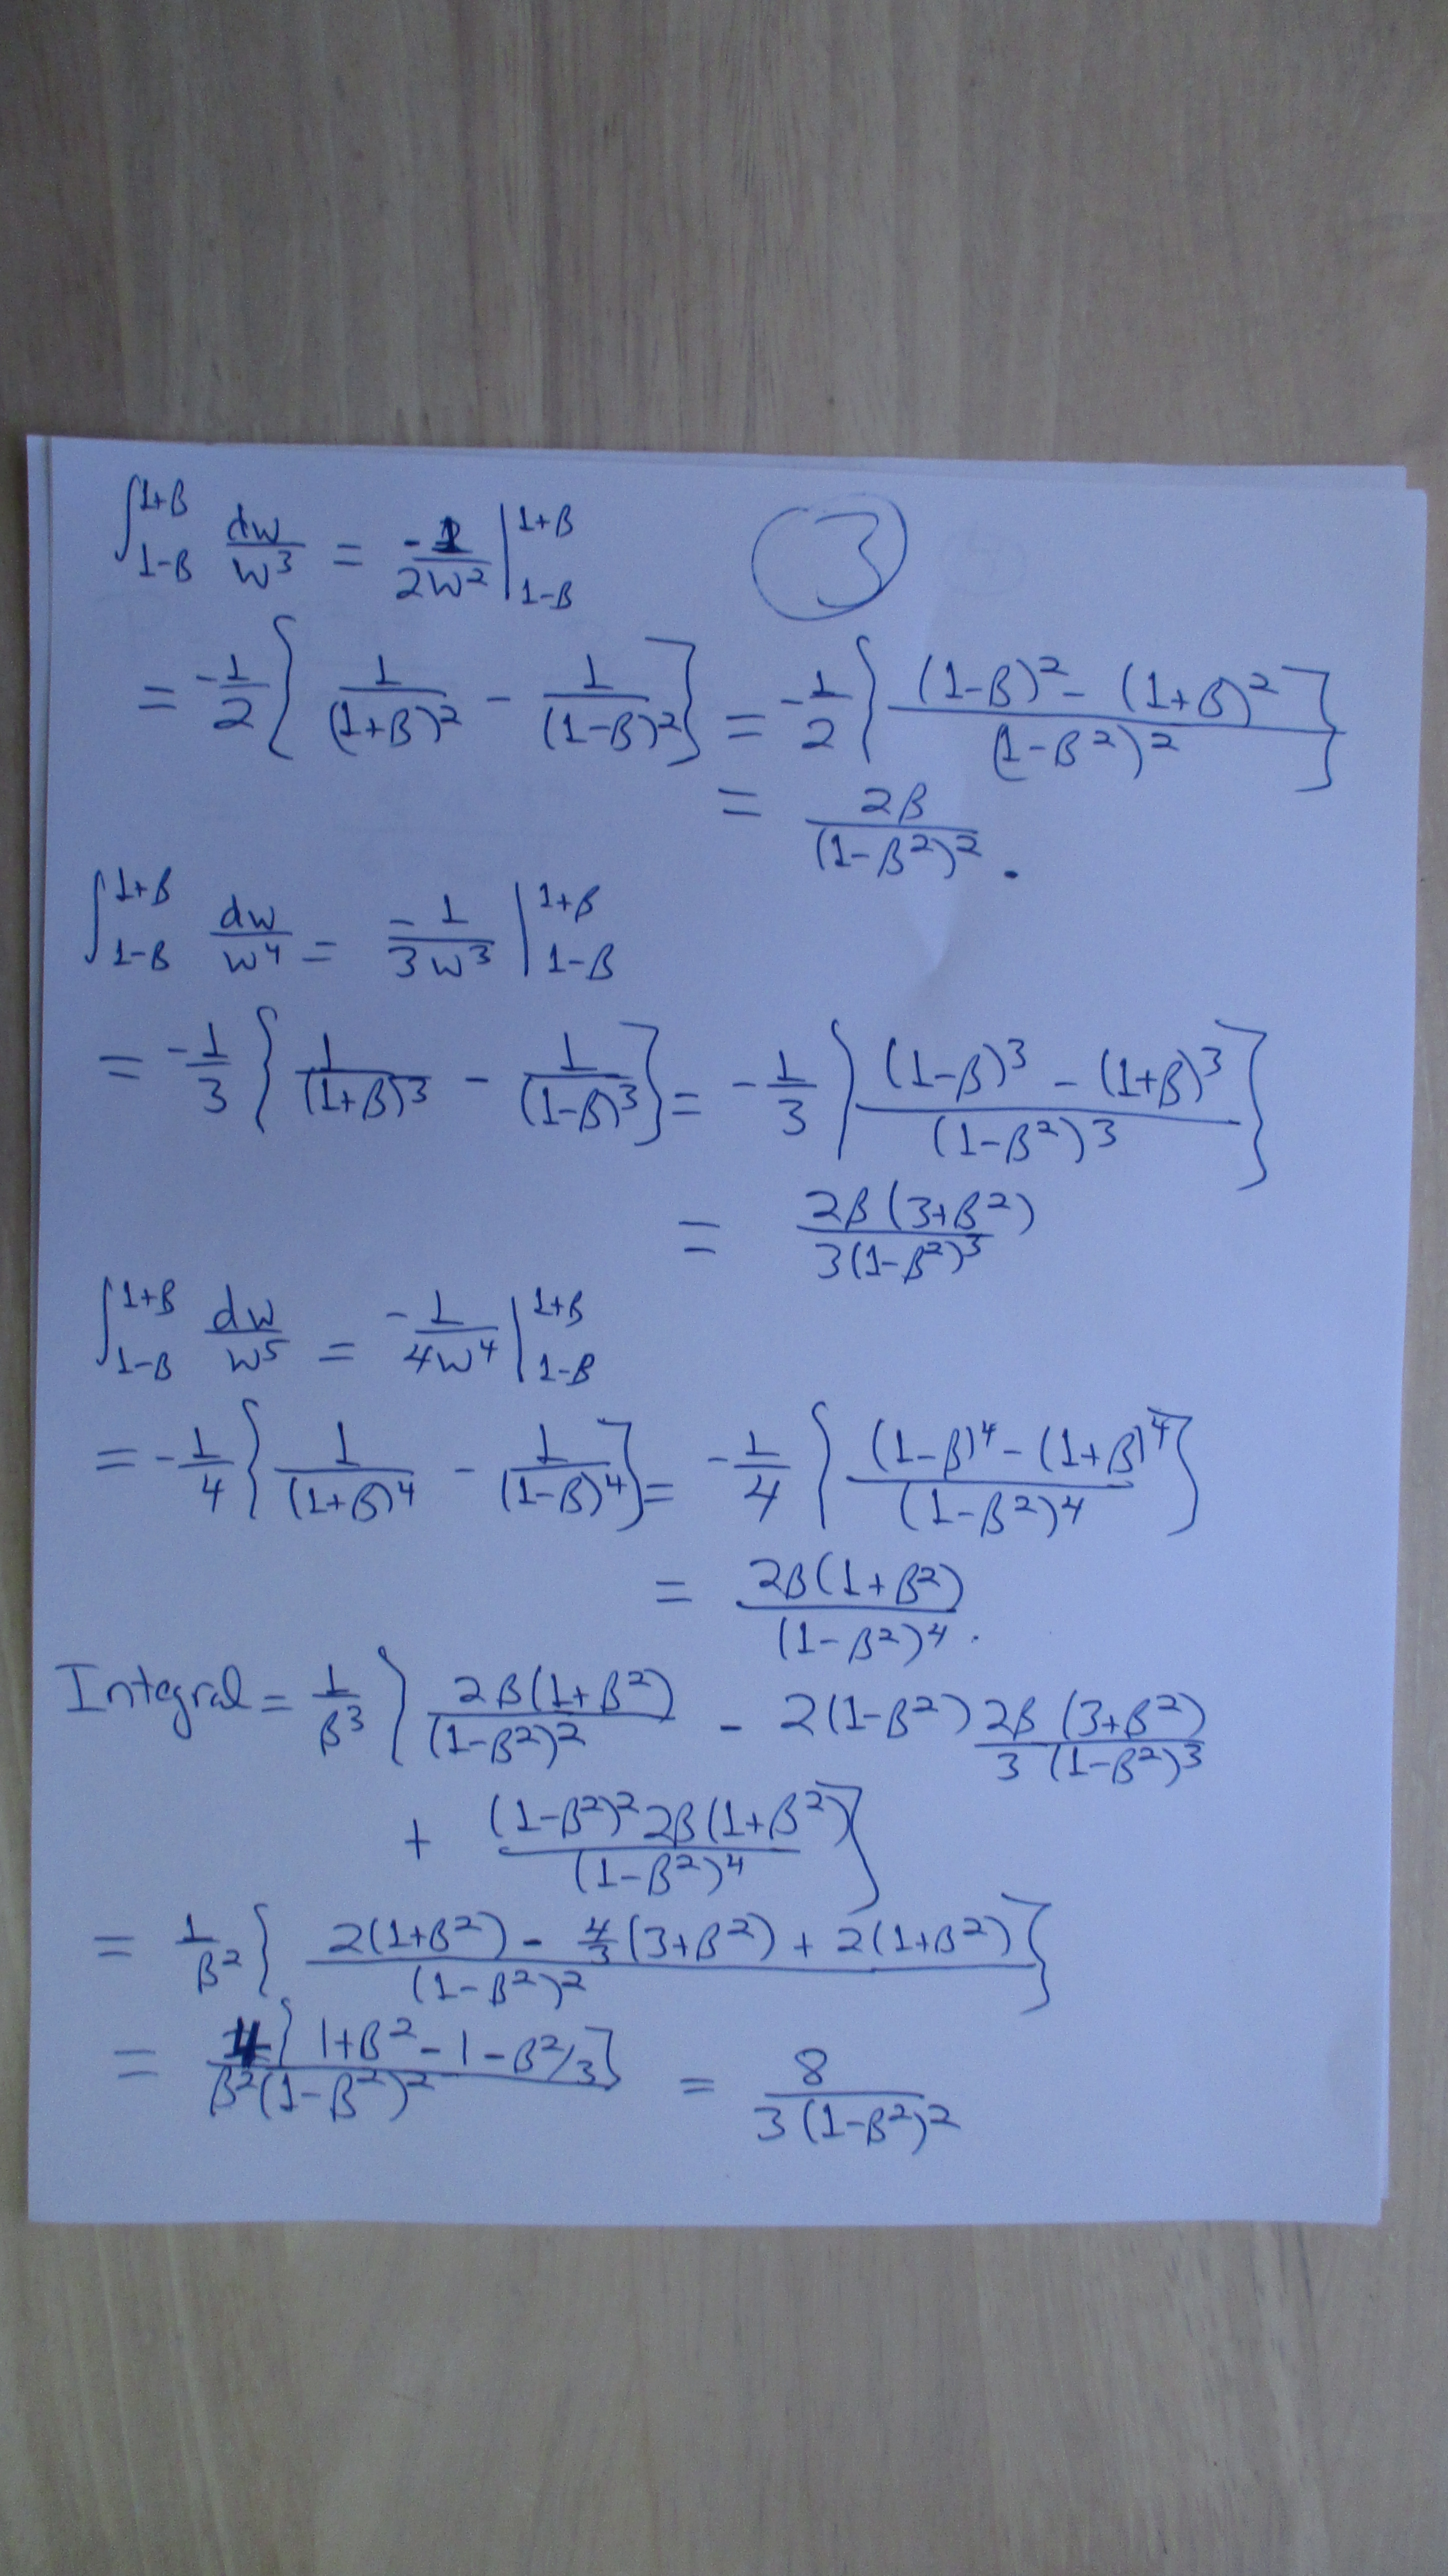 ∫_{1-β}^{1+β} dw/w³ = -1/2w² |_{1-β}^{1+β}
③
= -1/2 { 1/(1+β)² - 1/(1-β)² } = -1/2 { ((1-β)² - (1+β)²)/(1-β²)² }
= 2β/(1-β²)² .
∫_{1-β}^{1+β} dw/w⁴ = -1/3w³ |_{1-β}^{1+β}
= -1/3 { 1/(1+β)³ - 1/(1-β)³ } = -1/3 { ((1-β)³ - (1+β)³)/(1-β²)³ }
= 2β(3+β²)/3(1-β²)³
∫_{1-β}^{1+β} dw/w⁵ = -1/4w⁴ |_{1-β}^{1+β}
= -1/4 { 1/(1+β)⁴ - 1/(1-β)⁴ } = -1/4 { ((1-β)⁴ - (1+β)⁴)/(1-β²)⁴ }
= 2β(1+β²)/(1-β²)⁴ .
Integral = 1/β³ { 2β(1+β²)/(1-β²)² - 2(1-β²) 2β(3+β²)/3(1-β²)³
+ (1-β²)² 2β(1+β²)/(1-β²)⁴ }
= 1/β² { (2(1+β²) - 4/3(3+β²) + 2(1+β²))/(1-β²)² }
= 4{ 1+β² - 1 - β²/3 }/β²(1-β²)² = 8/3(1-β²)²